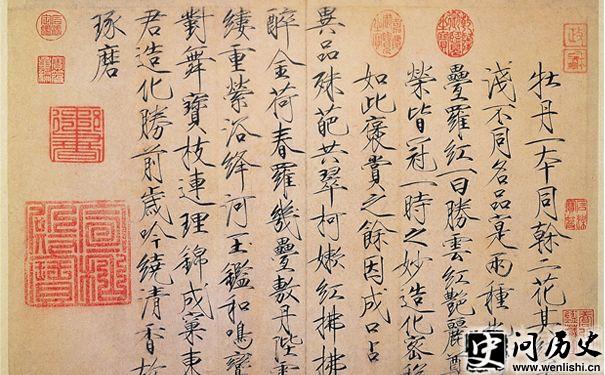 牡丹一本同幹二花其
淺不同名品寔兩種也
疊羅紅一曰勝雲紅艷麗尊
榮皆冠一時之妙造化密移
如此褒賞之餘因成口占
異品殊葩共翠柯嫩紅拂拂
醉金荷春羅幾疊敷丹陛雲
縷重縈浴絳河玉鑑和鳴鸞
對舞寶枝連理錦成窠東
君造化勝前歲吟繞清香故
琢磨
御書
问历史
www.wenlishi.cn